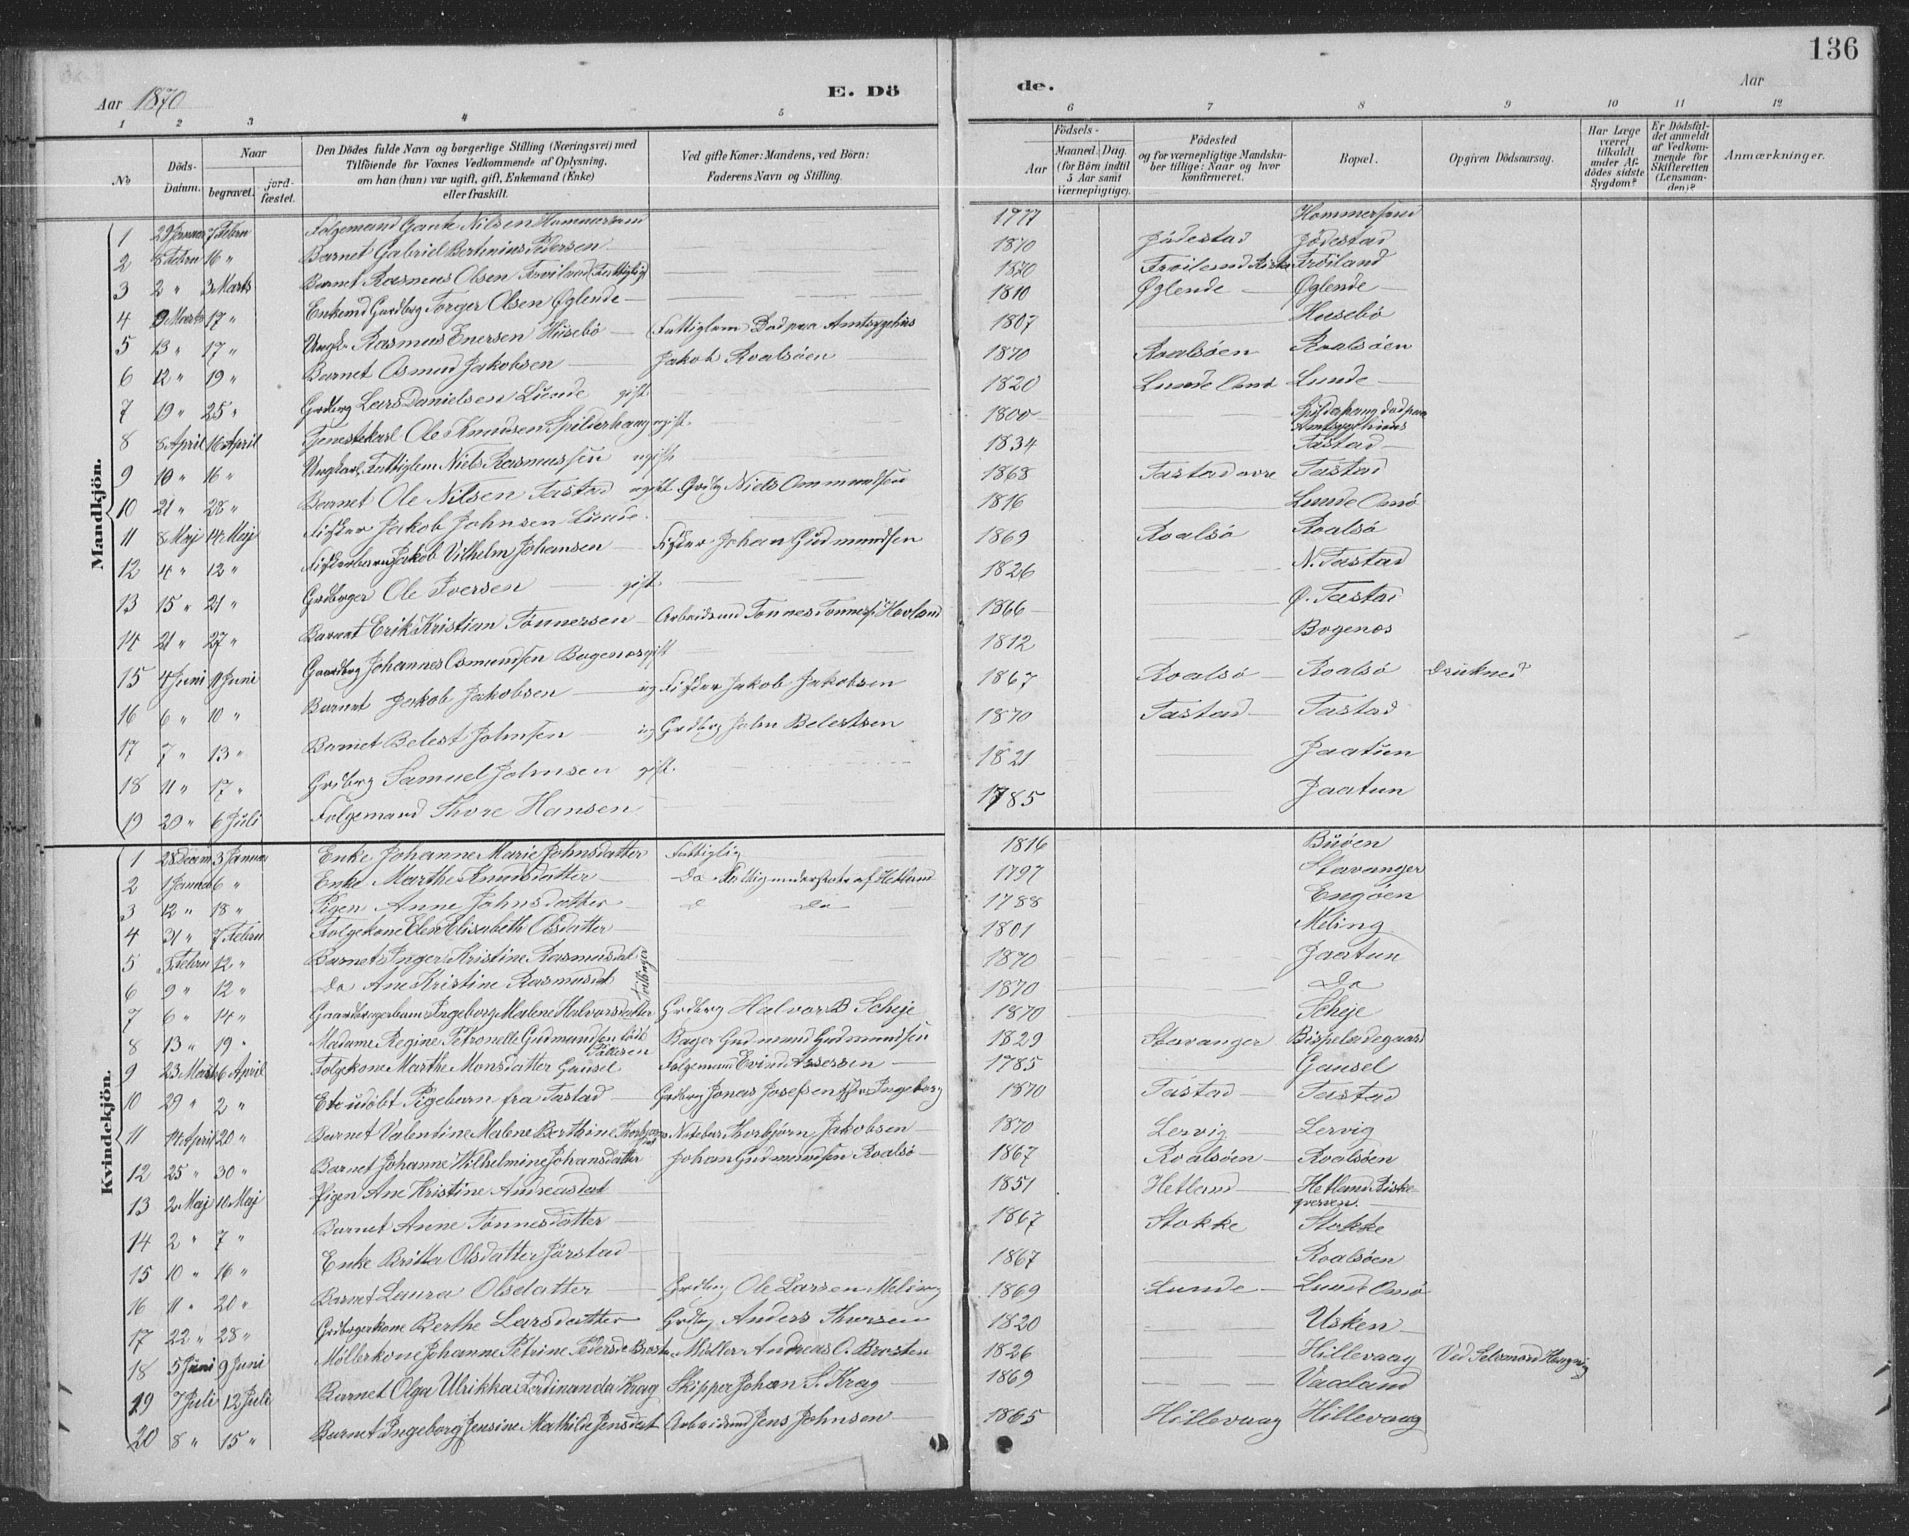 136
Aar 1870
E. Dö
de.
Aar
1 2 3 4 5 6 7 8 9 10 11 12
No
Döds-Datum.
Naar
begravet.
jord-fæstet.
Den Dödes fulde Navn og borgerlige Stilling (Næringsvei) med
Tilföiende for Voxnes Vedkommende af Oplysning,
om han (hun) var ugift, gift, Enkemand (Enke)
eller fraskilt.
Ved gifte Koner: Mandens, ved Börn:
Faderens Navn og Stilling.
Födsels-
Aar
Maaned. Dag.
(for Börn indtil
5 Aar samt
Værnepligtige).
Födested
og for værnepligtige Mandska-
ber tillige: Naar og hvor
konfirmeret.
Bopæl.
Opgiven Dödsaarsag.
Har Læge
været
tilkaldt
under Af-
dödes sidste
Sygdom?
Er Dödsfal-
det anmeldt
af Vedkom-
mende for
Skifteretten
(Lensman-
den)?
Anmærkninger.
Mandkjön.
1 29 Januar 7 Febru Folgemand Gaute Nilsen Hommersand 1777 Hommersand
2 8 Febru 16 " Barnet Gabriel Bertinius Pedersen 1870 Jödestad Jödestad
3 2 " 3 Marts Barnet Rasmus Olsen Fröiland Fattiglig 1870 Fröiland Fröiland
4 9 Marts 17 " Enkemd Gardbrg Torger Olsen Øglende 1810 Øglende Øglende
5 13 " 17 " Ungk. Rasmus Enersen Husebö Fattiglem Död paa Amtsygehus 1807 Husebö
6 12 " 19 " Barnet Osmud Jakobsen Jakob Roalsöen 1870 Roalsöen Roalsöen
7 19 " 25 " Grdbrg Lars Danielsen Lunde gift 1820 Lunde Omö Lunde
8 8 April 16 April Tjenestekarl Ole Knudsen Spilderhaug ugift. 1800 Spilderhaug död paa Amtsygehus
9 10 " 16 " Ungkarl, Fattiglem Niels Rasmussen ugift 1834 Tastad
10 21 " 28 " Barnet Ole Nilsen Tastad ugift Grdbg Niels Ommundsen 1868 Tastad øvre Tastad
11 8 Maj 14 Maj Fisker Jakob Johnsen Lunde 1816 Lunde Omö
12 4 " 12 " Fiskerbarn Jakob Vilhelm Johansen Fisker Johan Gudmundsen 1869 Roalsö Roalsö
13 15 " 21 " Grdbrger Ole Iversen gift. 1826 N. Tastad
14 21 " 27 " Barnet Erik Kristian Tönnersen Arbeidsmd Tönnes Tönnesf Havland 1866 Ø. Tastad
15 4 Juni 11 Juni Gaardbrg Johannes Osmundsen Bogenæs gift 1812 Bogenæs
16 6 " 10 " Barnet Jakob Jakobsen ug Fisker Jakob Jakobsen 1867 Roalsö Roalsö Druknet
17 7 " 13 " Barnet Belest Johnsen ug Grdbrg John Belestsen 1870 Tastad Tastad
18 11 " 17 " Grdbrg Samuel Johnsen gift. 1821 Jaatun
19 20 " 6 Juli Folgemand Thore Hansen 1785 Jaatun
Kvindekjön.
1 28 Decem 3 Januar Enke Johanne Marie Johnsdatter Fattiglig 1816 Buöen
2 1 Januar 6 " Enke Marthe Knudsdatter Do Fattigunderstøtte af Hetland 1797 Stavanger
3 12 " 18 " Pigen Anne Johnsdatter Do 1788 Engöen
4 31 " 7 Febru Folgekone Elen Elisabeth Olsdatter 1801 Meling
5 5 Febru 12 " Barnet Inger Kristine Rasmusdat 1870 Jaatun
6 9 " 12 " Do Ane Kristine Rasmusdat Tvillinger 1870 Do
7 6 " 14 " Gaardbrugerbarn Ingeborg Malene Halvorsdatter Grdbrg Halvor B Scheje 1870 Scheje
8 13 " 19 " Madame Regine Petronelle Gudmundsen född Pettersen Bager Gudmund Gudmundsen 1829 Stavanger Bispeladegaard
9 23 Marts 6 April Folgekone Marthe Monsdatter Gausel Folgemand Evind Assersen 1785 Gausel
10 29 " 2 " Et udöbt Pigebarn fra Tastad Grdbrg Jonas Josefsen Ingeborg 1870 Tastad Tastad
11 14 April 20 " Barnet Valentine Malene Berthine Thorbjørnsdat Thorbjörn Jakobsen 1870 Lervig Lervig
12 25 " 30 " Barnet Johanne Wilhelmine Johansdatter Johan Gudmundsen Roalsö 1867 Roalsöen Roalsöen
13 2 Maj 10 Maj Pigen Ane Kristine Andreasdat 1851 Hetland Hetland
14 2 " 7 " Barnet Anne Tönnesdatter 1867 Stokke Stokke
15 10 " 16 " Enke Britta Olsdatter Jörstad 1867 Roalsöen
16 11 " 20 " Barnet Laura Olsdatter Grdbrg Ole Larsen Meling 1869 Lunde Lunde Omö
17 22 " 28 " Grdbrgerkone Berthe Larsdatter Grdbrg Anders Thorsen 1820 Usken
18 5 Juni 9 Juni Møllerkone Johanne Petrine Pedersd Brosten Müller Andreas O. Brosten 1826 Hillevaag Ved Selvmord Hængning
19 7 Juli 12 Juli Barnet Olga Ulrikka Ferdinanda Krag Skipper Johan S. Krag 1869 Vaaland
20 8 " 15 " Barnet Ingeborg Jensine Mathilde Jensdat Arbeidsmd Jens Johnsen 1865 Hillevaag Hillevaag